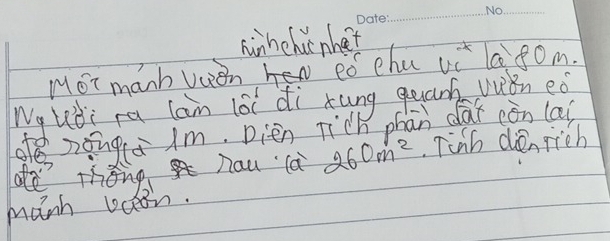 Date: No.
hình chữ nhật
Một mảnh vườn có chu vi là 80m.
Người ra làm lối đi xung quanh vườn có
độ rộng là 1m. Diện tích phần đất còn lại
để trồng rau là 260m². Tính diện tích
mảnh vườn.